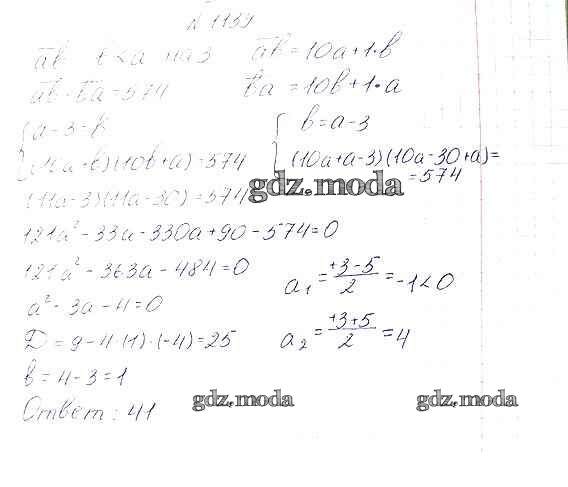 N 1139
ab b < a на 3 ab = 10a + 1·b
ab · ba = 574 ba = 10b + 1·a
{ a - 3 = b { b = a - 3
(10a + b)(10b + a) = 574 (10a + a - 3)(10a - 30 + a) =
= 574
(11a - 3)(11a - 30) = 574
gdz.moda
121a² - 33a - 330a + 90 - 574 = 0
121a² - 363a - 484 = 0 a₁ = +3-5/2 = -1 < 0
a² - 3a - 4 = 0
D = 9 - 4·(1)·(-4) = 25 a₂ = +3+5/2 = 4
b = 4 - 3 = 1
Ответ: 41
gdz.moda gdz.moda